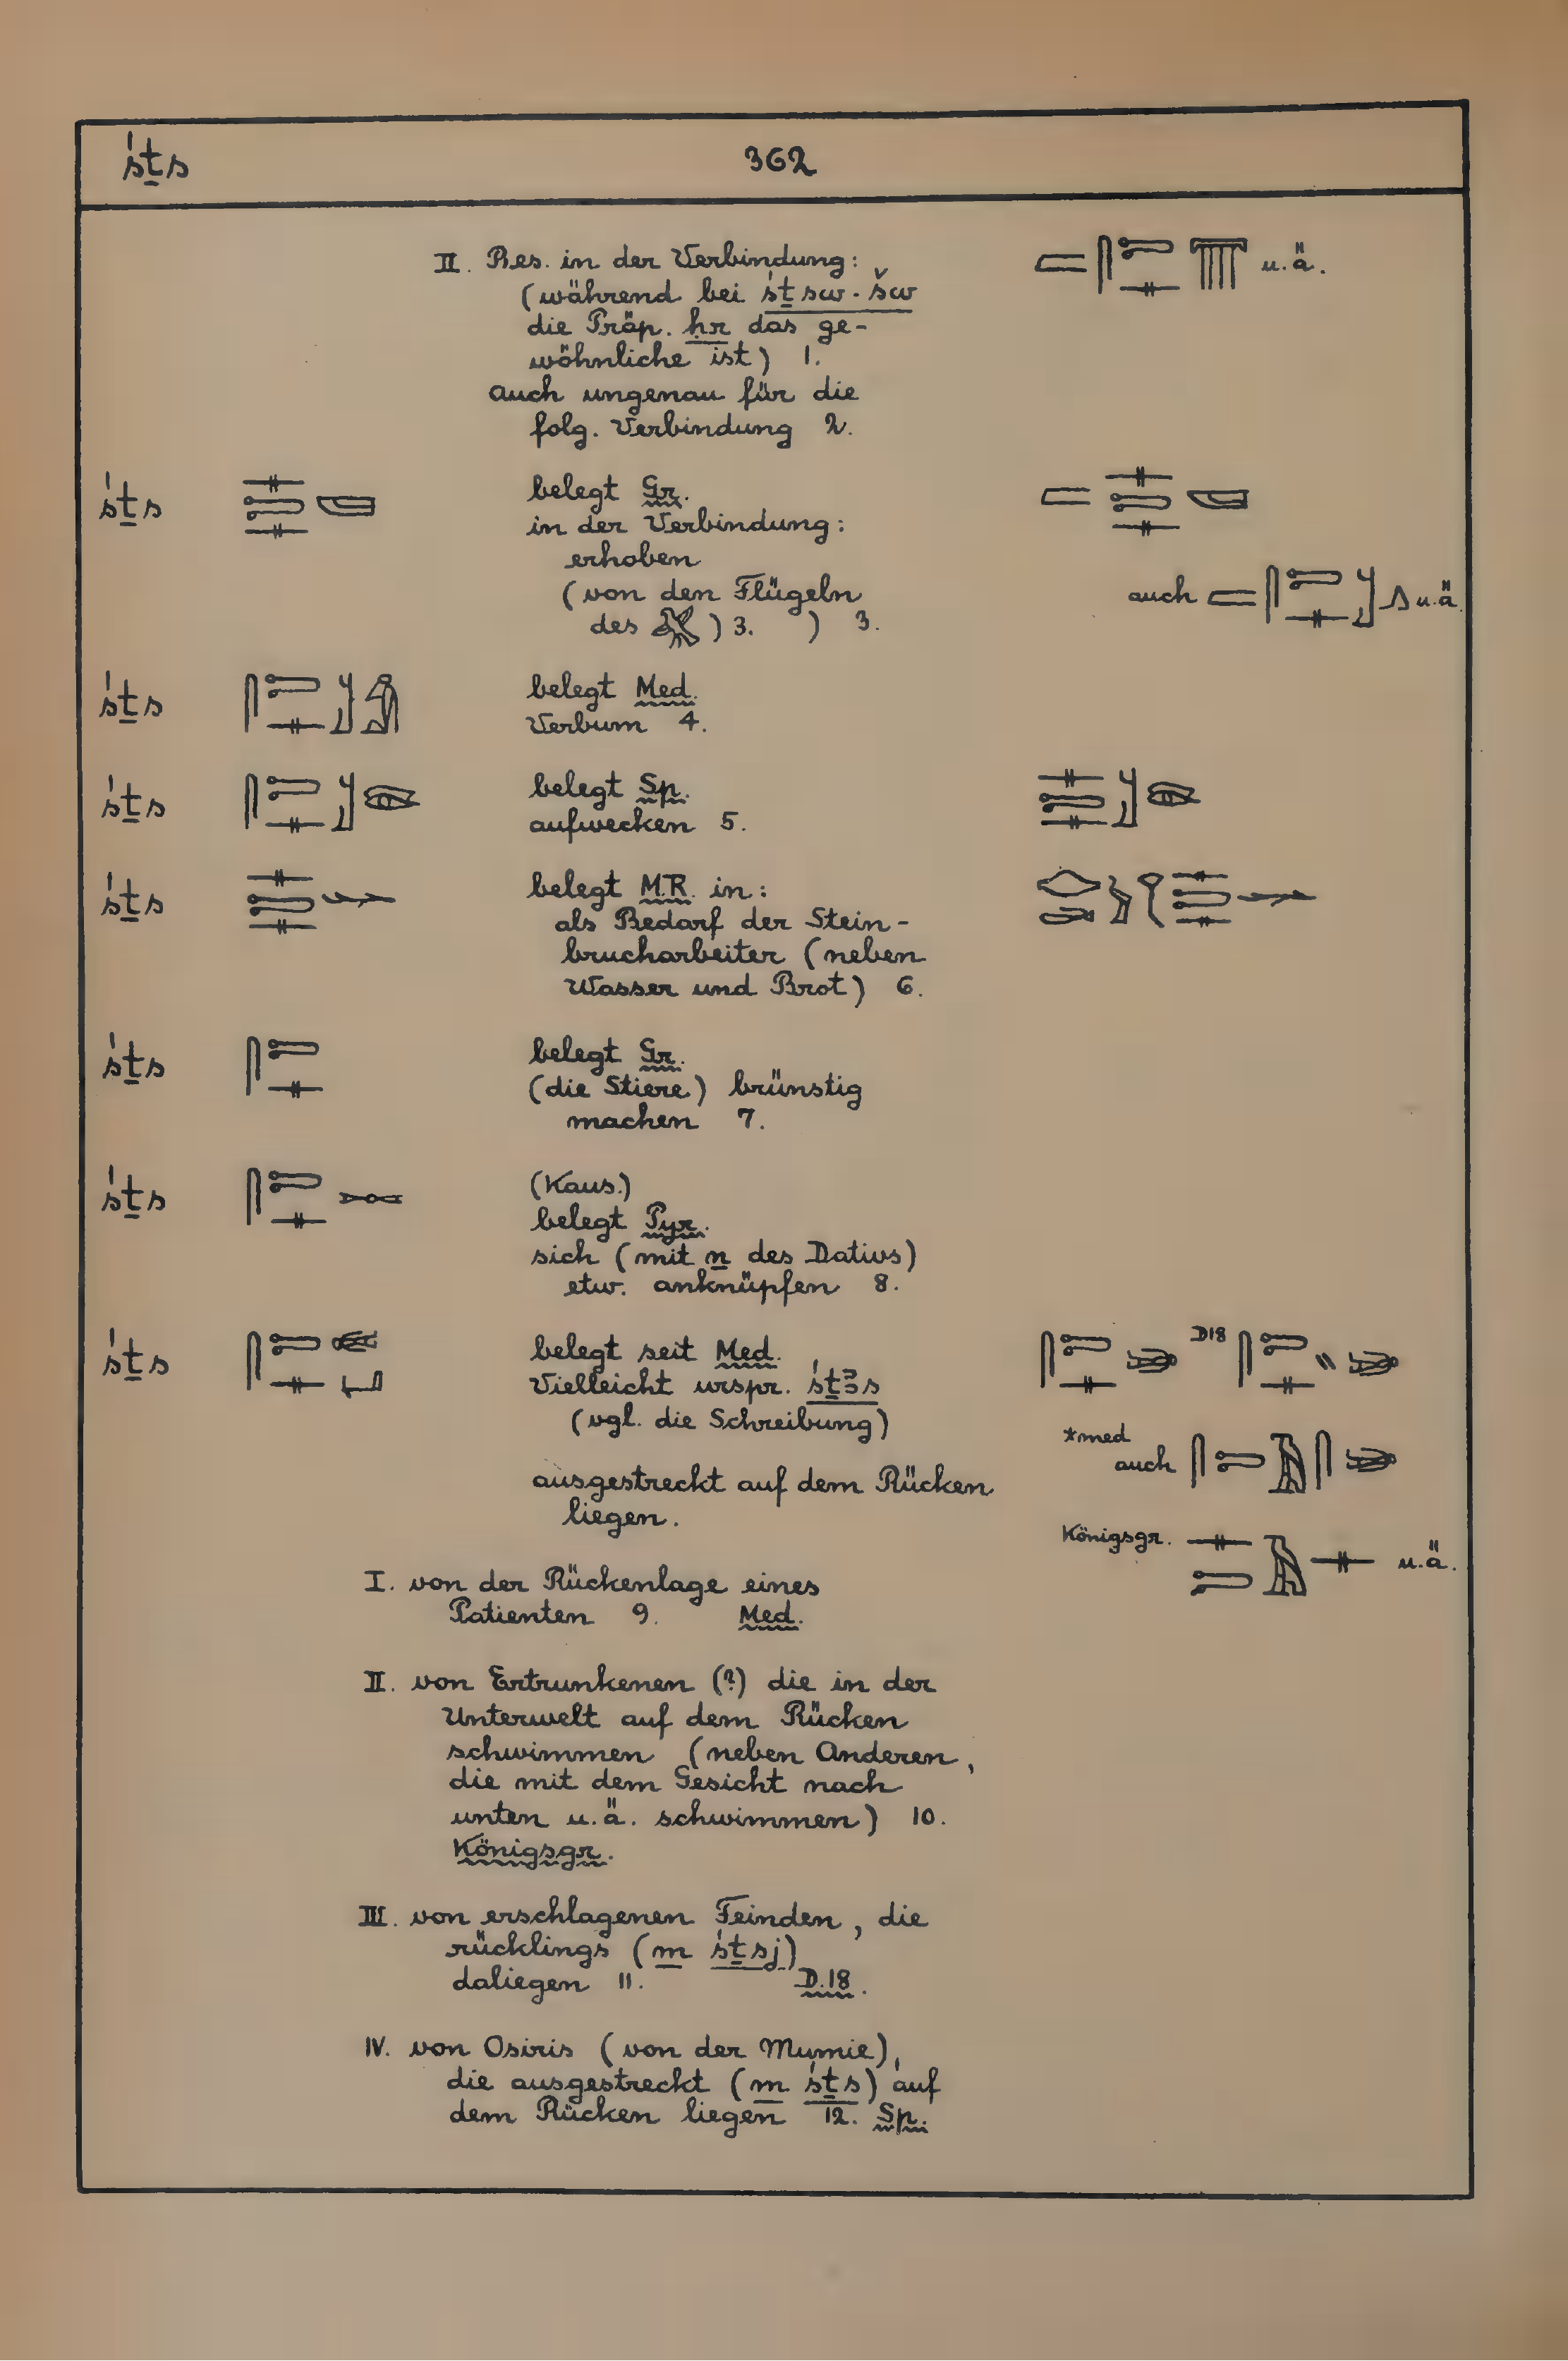 śṯs 362
II. Bes. in der Verbindung: u.ä.
(während bei śṯsw·šw
die Präp. ḥr das ge-
wöhnliche ist) 1.
auch ungenau für die
folg. Verbindung 2.
śṯs belegt Gr.
in der Verbindung:
erhoben
(von den Flügeln auch u.ä
des ) 3. ) 3.
śṯs belegt Med.
Verbum 4.
śṯs belegt Sp.
aufwecken 5.
śṯs belegt M.R. in:
als Bedarf der Stein-
brucharbeiter (neben
Wasser und Brot) 6.
śṯs belegt Gr.
(die Stiere) brünstig
machen 7.
śṯs (Kaus.)
belegt Pyr.
sich (mit n des Dativs)
etw. anknüpfen 8.
śṯs belegt seit Med. D18
Vielleicht urspr. śṯꜣs
(vgl. die Schreibung)
*med
auch
ausgestreckt auf dem Rücken
liegen.
Königsgr. u.ä.
I. von der Rückenlage eines
Patienten 9. Med.
II. von Ertrunkenen (?) die in der
Unterwelt auf dem Rücken
schwimmen (neben Anderen,
die mit dem Gesicht nach
unten u.ä. schwimmen) 10.
Königsgr.
III. von erschlagenen Feinden, die
rücklings (m śṯsj)
daliegen 11. D.18.
IV. von Osiris (von der Mumie),
die ausgestreckt (m śṯs) auf
dem Rücken liegen 12. Sp.